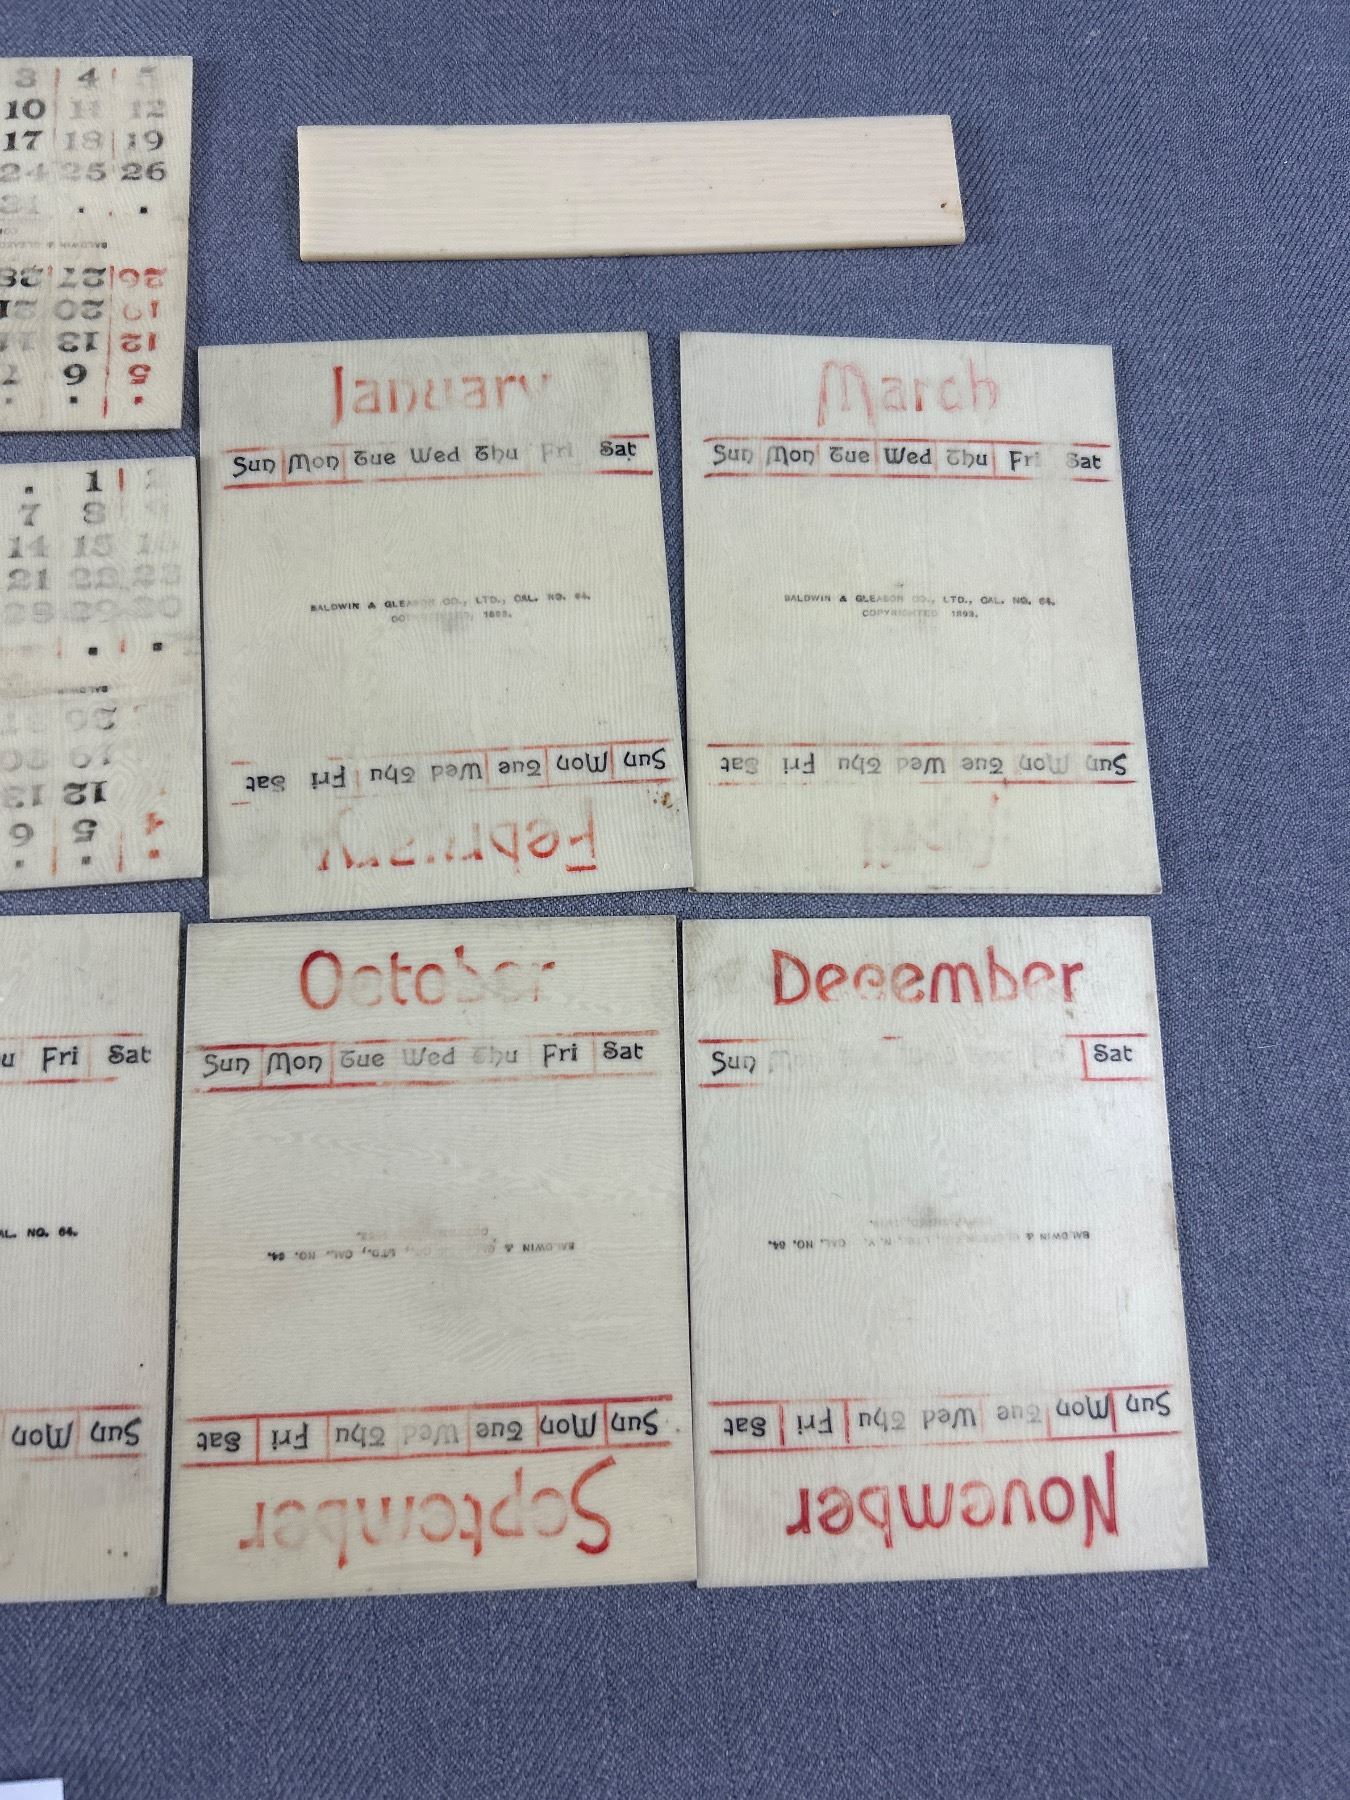 3 4 5
10 11 12
17 18 19
24 25 26
31
BALDWIN & GLEASO
5 6 7
12 13 14
19 20 21
26 27 28
1 2
7 8 9
14 15 16
21 22 23
28 29 30
4 5 6
12 13
19 20
26
January
Sun Mon Tue Wed Thu Fri Sat
BALDWIN & GLEASON CO., LTD., CAL. NO. 64.
COPYRIGHTED, 1893.
Sun Mon Tue Wed Thu Fri Sat
February
March
Sun Mon Tue Wed Thu Fri Sat
BALDWIN & GLEASON CO., LTD., CAL. NO. 64.
COPYRIGHTED 1893.
Sun Mon Tue Wed Thu Fri Sat
April
u Fri Sat
AL. NO. 64.
Sun Mon
October
Sun Mon Tue Wed Thu Fri Sat
BALDWIN & GLEASON CO., LTD., CAL. NO. 64.
Sun Mon Tue Wed Thu Fri Sat
September
December
Sun Mon Fri Sat
BALDWIN & GLEASON CO., LTD., N. Y. CAL. NO. 64.
Sun Mon Tue Wed Thu Fri Sat
November